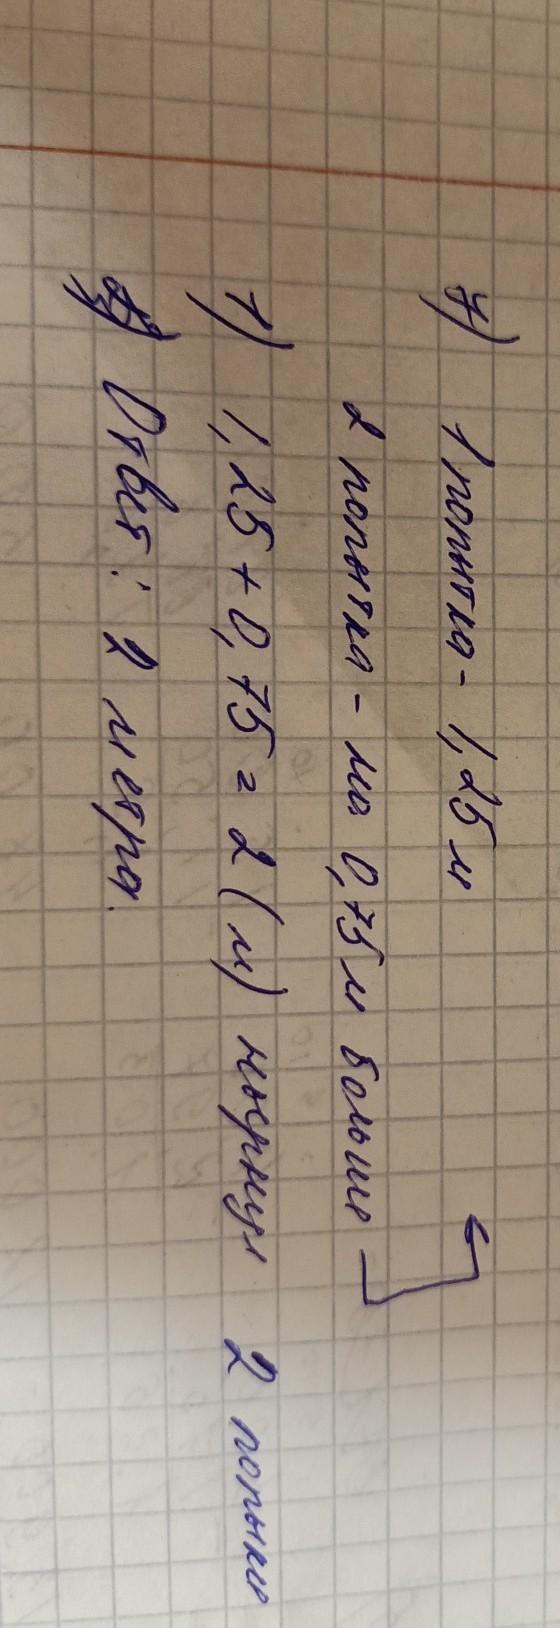 7) 1 попытка - 1,25 м
2 попытка - на 0,75 м больше
1) 1,25 + 0,75 = 2 (м) нырнул 2 попытки
Ответ: 2 метра.